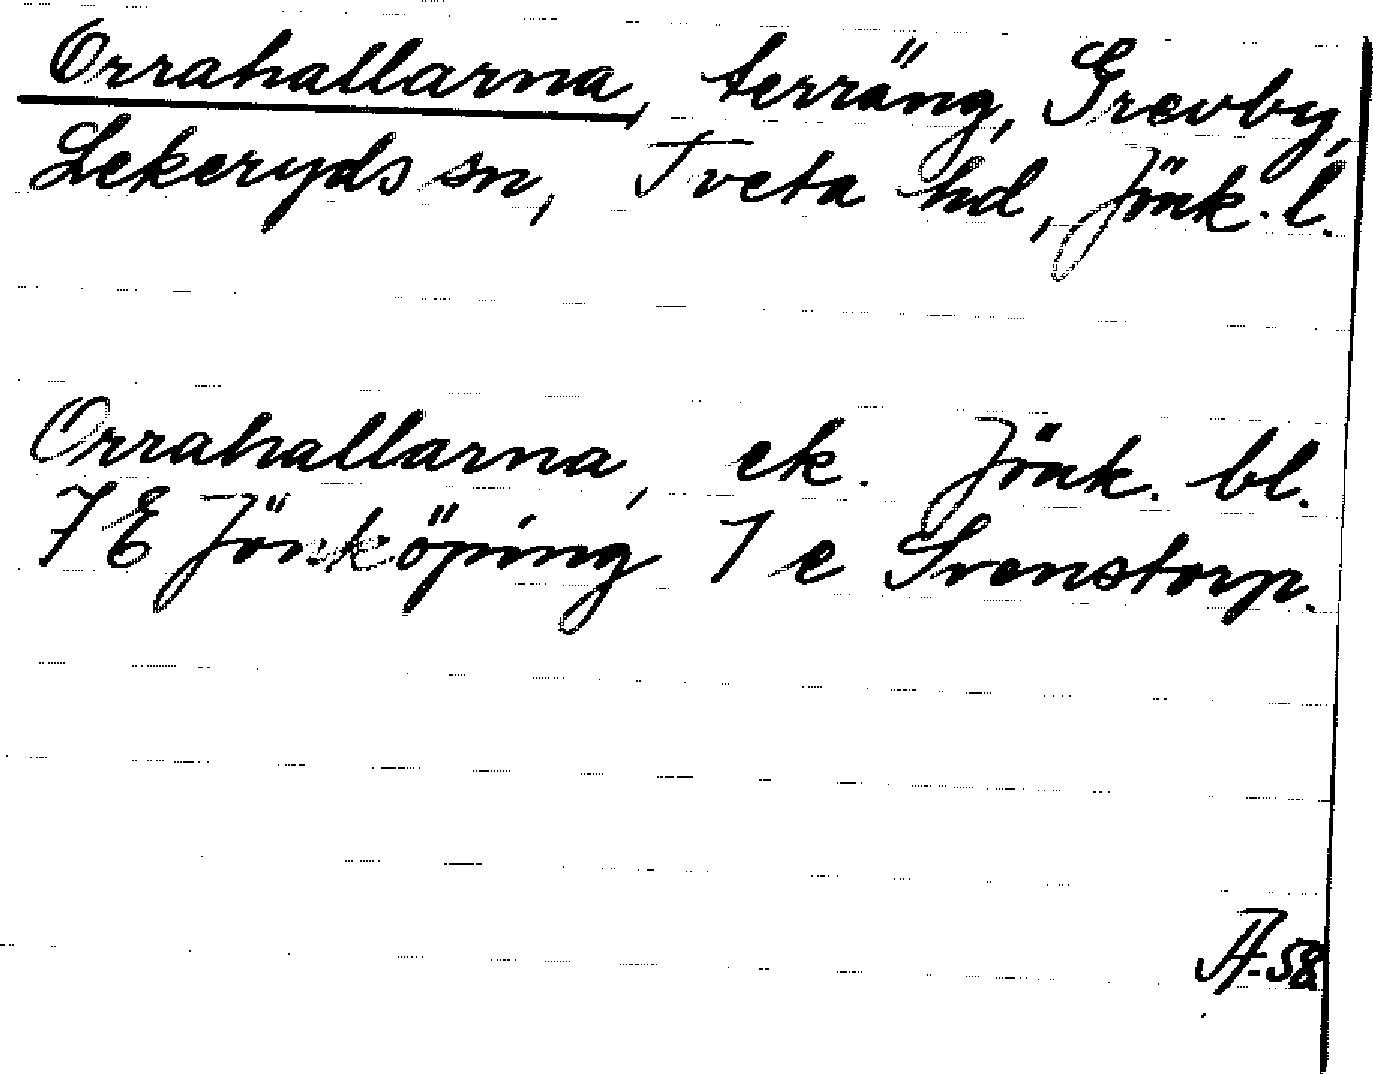 Orrahallarna, terräng, Grevby,
Lekeryds sn, Tveta hd, Jönk. l.
Orrahallarna, ek. Jönk. bl.
7 E Jönköping 1 e Svenstorp.
-58